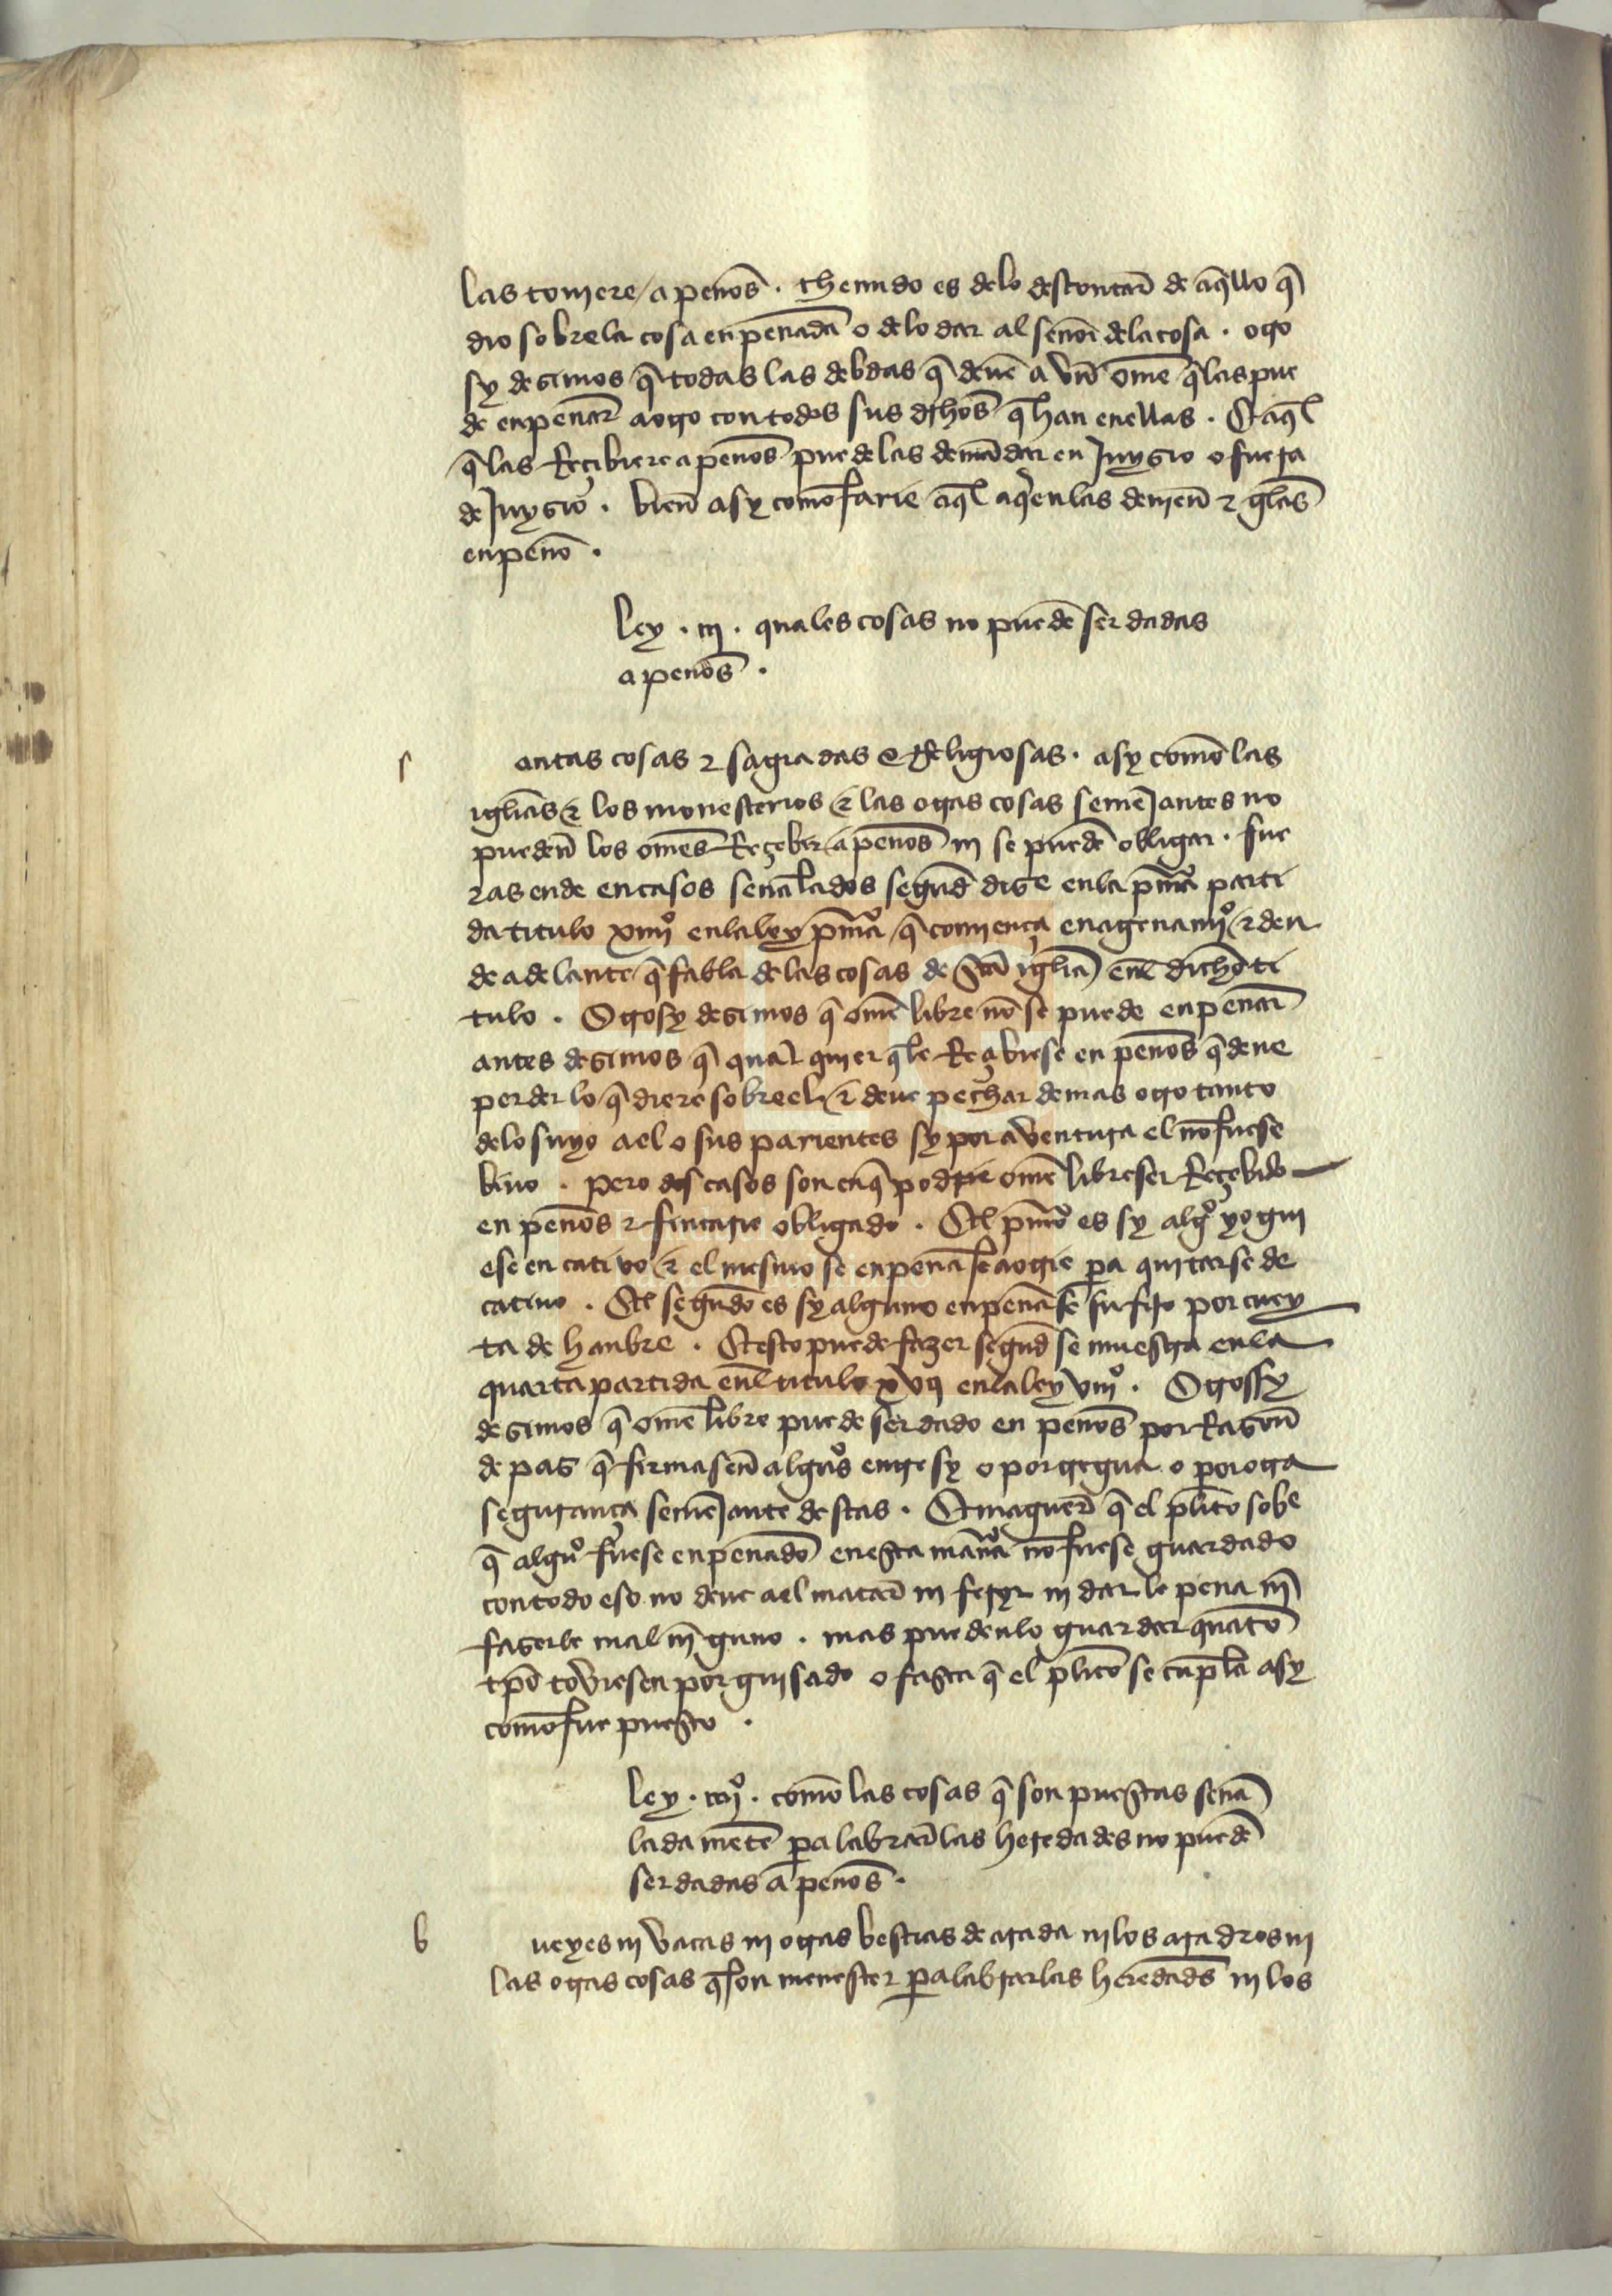 las toujere a penos̄ . thenudo es delo descontar̄ de aq̄llo q̄
dio sobrela cosa enpen̄ada o delo dar al sen̄or dela cosa . otro
sy desimos q̄ todas las debdas q̄ deuē a vn̄ ome q̄ las pue
de enpen̄ar a otro con todos sus dr̄hos q̄ han enellas . Et aq̄l
q̄ las Reçibiere a penos̄ puede las demādar en Juysio o fuera
de Juysio . bien̄ asy como farie aq̄l aq̄en las deuien̄ ⁊ q̄ las
enpeño .
ley . iij . quales cosas no puedē ser dadas
a penos̄ .
s antas cosas ⁊ sagradas e Religiosas . asy como las
igl̄ias ⁊ los monesterios ⁊ las otras cosas semeJantes no
pueden̄ los omes̄ Reçebir a penos̄ nj se puedē obligar . fue
ras ende en casos sen̄alados segūd dise enla p̄mᵃ parti
da titulo xiiijº enla ley p̄mᵃ q̄ comença enagenamjº ⁊ den
de adelante q̄ fabla delas cosas de sāta igl̄ia enl̄ dicho ti
tulo . Otrosy desimos q̄ ome libre no se puede enpen̄ar
antes desimos q̄ qual quier q̄ le Reçibiese en penos̄ q̄ deue
perder lo q̄ diere sobreel ⁊ deue pechar demas otro tanto
delo suyo a el o sus parientes sy por aventura el no fuese
biuo . pero dos casos son en q̄ podrie ome libre ser Reçebido
en penos̄ ⁊ fincarie obligado . El p̄mº es sy algº yogui
ese en cativo ⁊ el mesmo se enpen̄ase a otrie p̄a quitarse de
catiuo . El segūdo es sy alguno enpen̄ase su fijo por cuey
ta de hanbre . Et esto puede fazer segūd se muestra enla
quarta partida enl̄ titulo xvij enla ley viijº . Otrossy
desimos q̄ ome libre puede ser dado en penos̄ por Rason̄
de pas q̄ firmasen̄ algūos entre sy o por tregua o por otra
segurança semeJante destas . Et maguer̄ q̄ el pl̄ito sobre
q̄ algūº fuese enpen̄ado enesta manᵃ no fuese guardado
con todo eso no deue a el matar̄ nj ferjr nj darle pena nj̄
faserle mal nj̄guno . mas puedenlo guardar quāto
tp̄o tovjesen por guisado o fasta q̄ el pl̄ito se cunpla asy
como fue puesto .
ley . iiijº . como las cosas q̄ son puestas sen̄a
lada mētē p̄a labrar̄ las heredades no puedē
ser dadas a penos̄ .
b ueyes nj vacas nj otras bestias de arada nj los aradros nj
las otras cosas q̄ son menester p̄a labrar las heredads̄ nj los